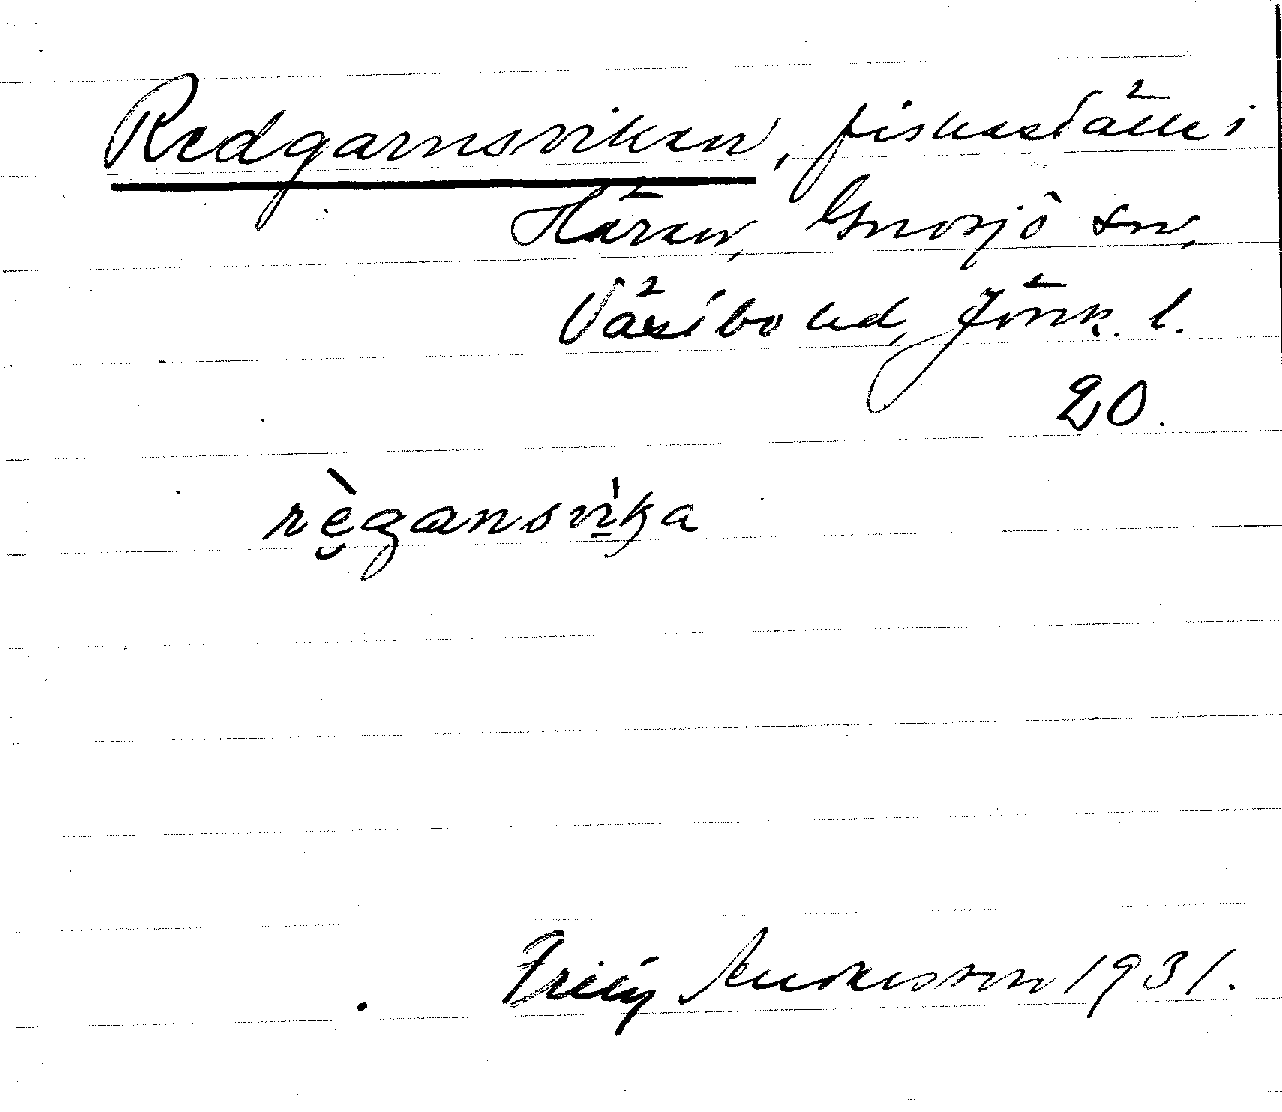 Redgarnsviken, fiskeställe i
Hären, Gnosjö sn,
Västbo hd, Jönk. l.
20.
règansvika
Andersson 1931.